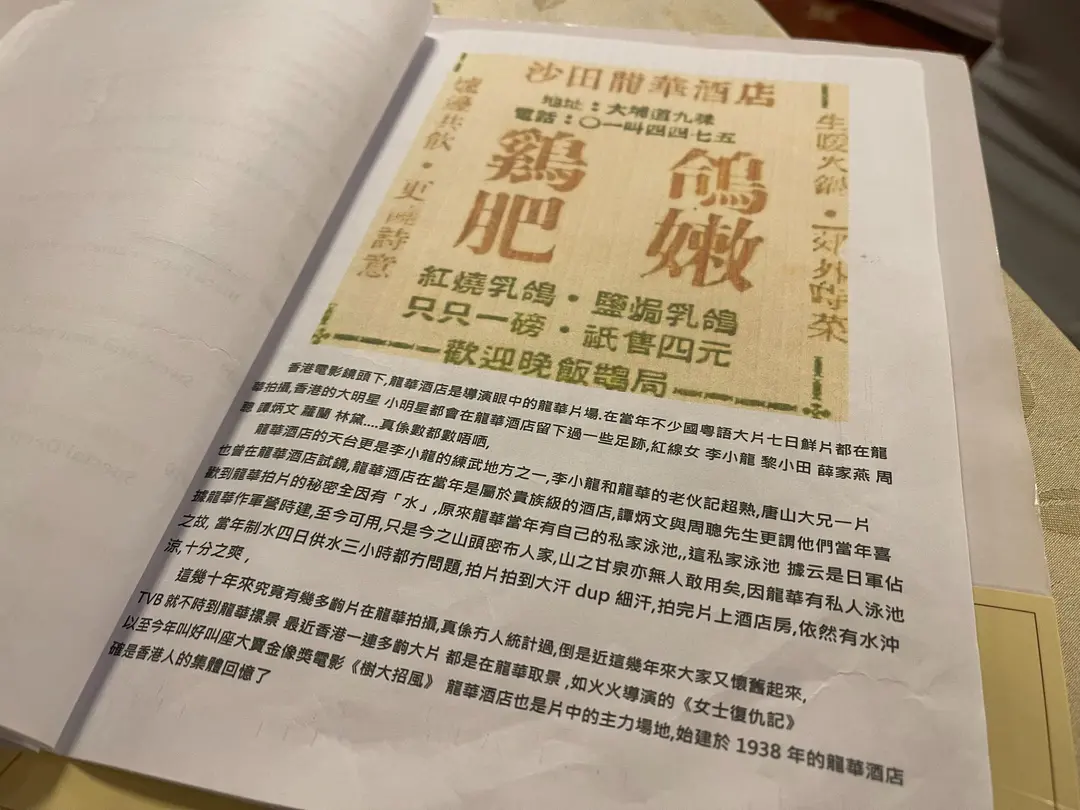 沙田龍華酒店
地址：大埔道九咪
電話：〇一叫四四七五
爐邊共飲・更饒詩意
鷄肥
鴿嫩
生暖火鍋・郊外時菜
紅燒乳鴿・鹽焗乳鴿
只只一磅・祇售四元
歡迎晚飯鵲局
香港電影鏡頭下,龍華酒店是導演眼中的龍華片場.在當年不少國粵語大片七日鮮片都在龍
華拍攝,香港的大明星 小明星都會在龍華酒店留下過一些足跡,紅線女 李小龍 黎小田 薛家燕 周
聰 譚炳文 蘿蘭 林黛....真係數都數唔哂,
龍華酒店的天台更是李小龍的練武地方之一,李小龍和龍華的老伙記超熟,唐山大兄一片
也曾在龍華酒店試鏡,龍華酒店在當年是屬於貴族級的酒店,譚炳文與周聰先生更謂他們當年喜
歡到龍華拍片的秘密全因有「水」,原來龍華當年有自己的私家泳池,,這私家泳池 據云是日軍佔
據龍華作軍營時建,至今可用,只是今之山頭密布人家,山之甘泉亦無人敢用矣,因龍華有私人泳池
之故, 當年制水四日供水三小時都冇問題,拍片拍到大汗 dup 細汗,拍完片上酒店房,依然有水沖
涼,十分之爽 ,
這幾十年來究竟有幾多齣片在龍華拍攝,真係冇人統計過,倒是近這幾年來大家又懷舊起來,
TVB 就不時到龍華摞景 最近香港一連多齣大片 都是在龍華取景 ,如火火導演的《女士復仇記》
以至今年叫好叫座大賣金像獎電影《樹大招風》 龍華酒店也是片中的主力場地,始建於 1938 年的龍華酒店
確是香港人的集體回憶了